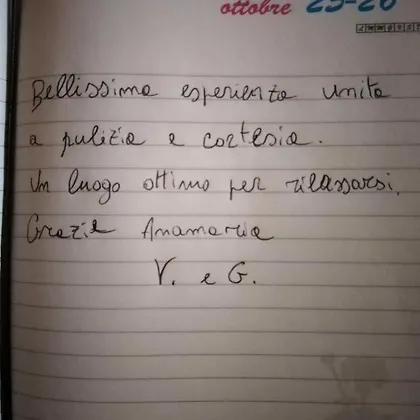 ottobre 25-26
Bellissima esperienza unita
a pulizia e cortesia.
Un luogo ottimo per rilassarsi.
Grazie Anamaria
V. e G.